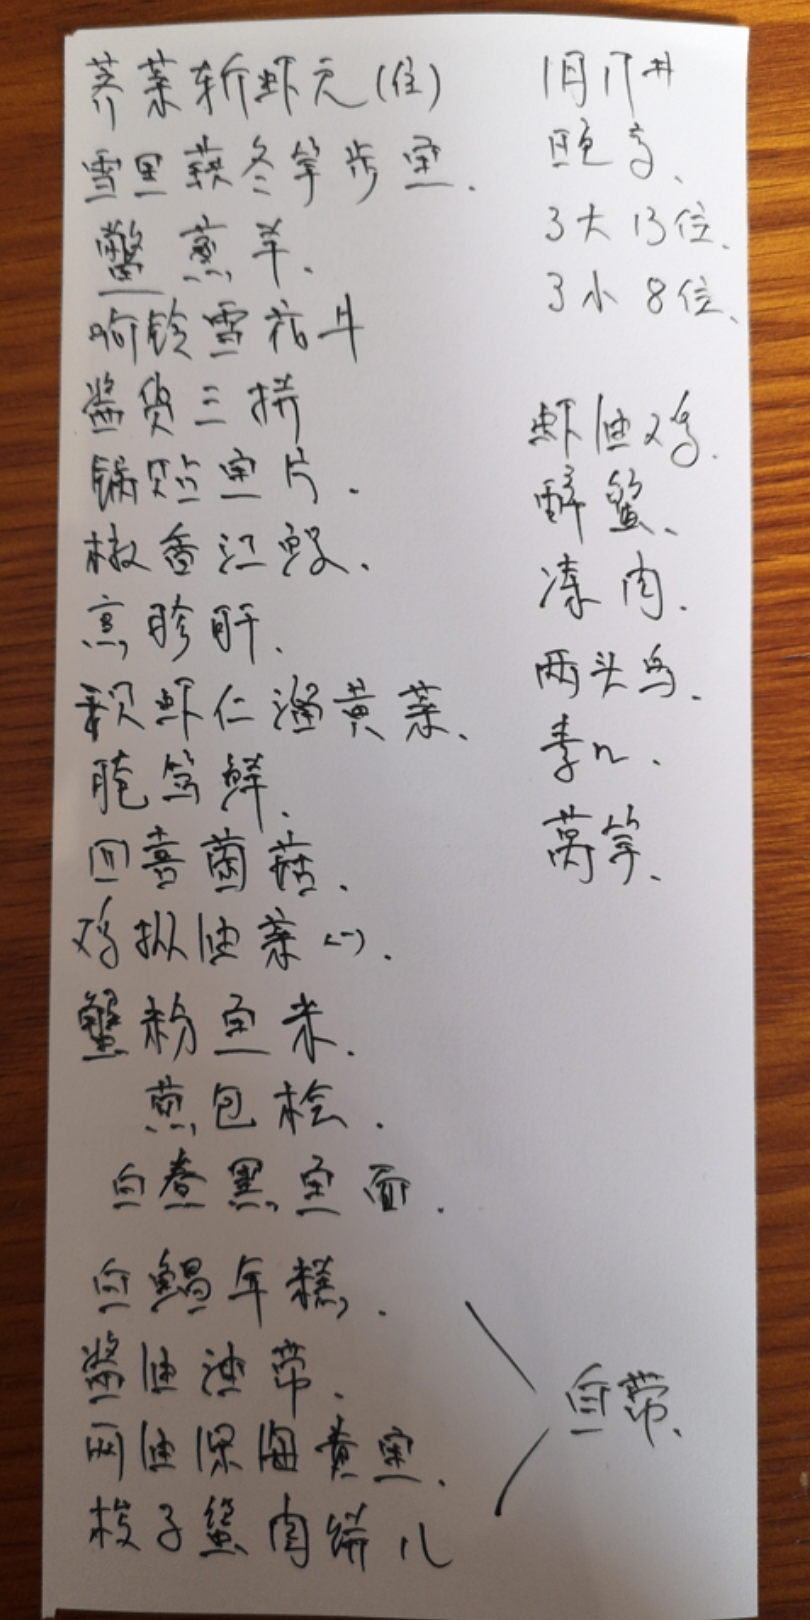 荠菜斩虾元(位)
雪里蕻冬笋步鱼.
鳖蒸羊.
响铃雪花牛
酱货三拼
锅贴鱼片.
椒香江鳗.
烹胗肝.
虾仁溜黄菜、
腌笃鲜.
四喜菌菇.
鸡枞油菜心.
蟹粉鱼米.
葱包桧.
白卷黑鱼面.
年糕.
酱油油带.
两油深海黄鱼.
梭子蟹肉饼儿
1月17#
晚
3大13位、
3小8位、
虾油鸡.
醉蟹、
冻肉.
两头乌.
素儿.
莴笋、
自带、